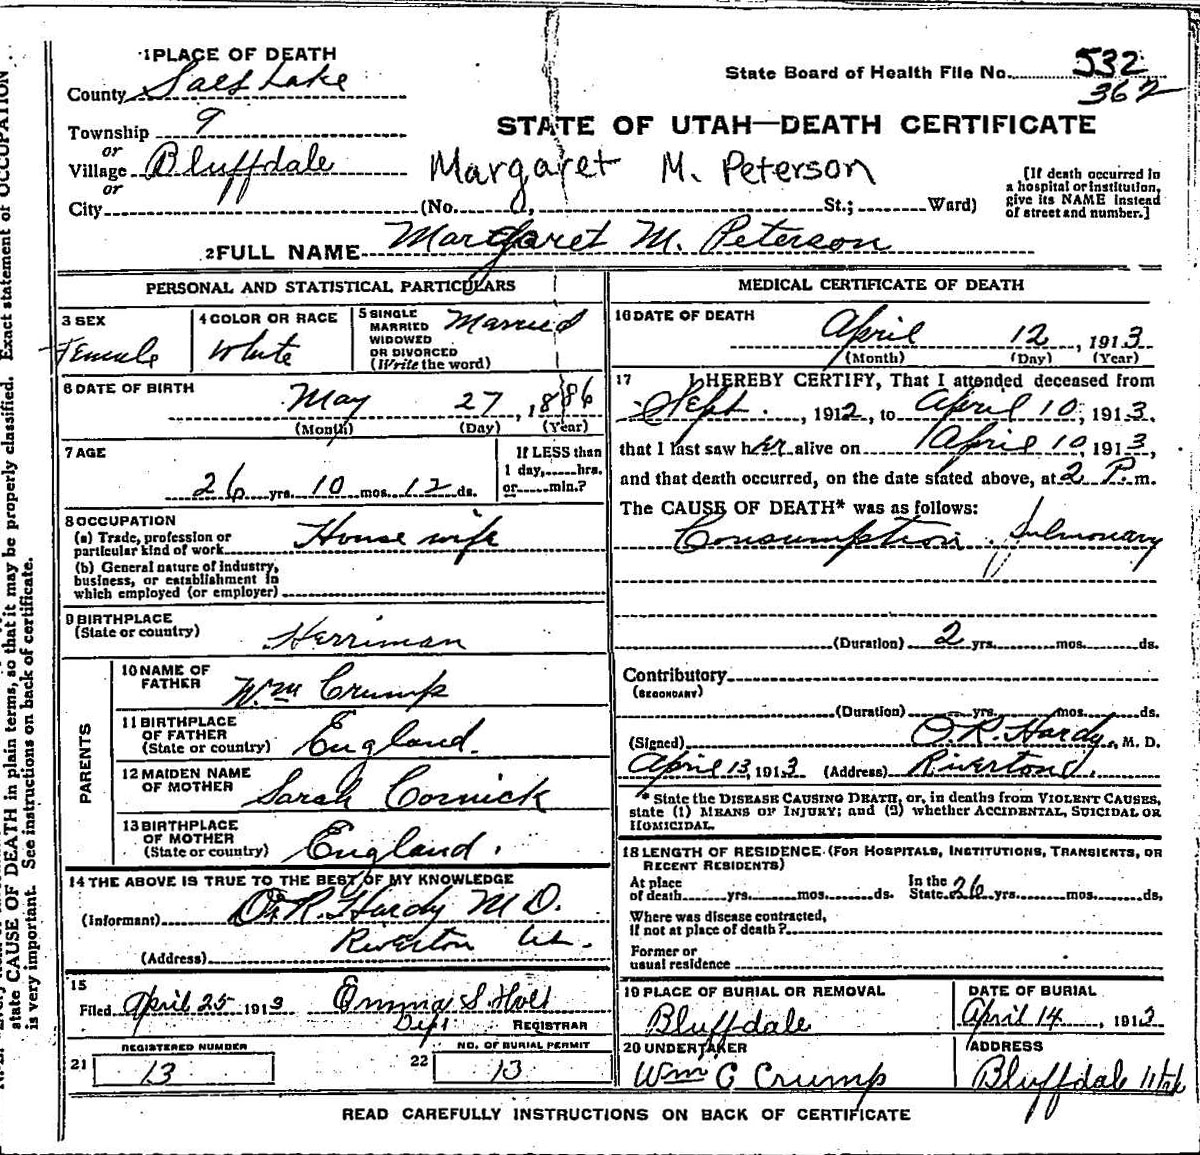 1 PLACE OF DEATH
County Salt Lake
State Board of Health File No. 532
362
Township 9
or
Village Bluffdale
or
City (No. , St.; Ward)
STATE OF UTAH—DEATH CERTIFICATE
Margaret M. Peterson
[If death occurred in
a hospital or institution,
give its NAME instead
of street and number.]
2 FULL NAME Margaret M. Peterson
PERSONAL AND STATISTICAL PARTICULARS
3 SEX
Female
4 COLOR OR RACE
White
5 SINGLE
MARRIED
WIDOWED
OR DIVORCED
(Write the word)
Married
6 DATE OF BIRTH
May 27, 1886
(Month) (Day) (Year)
7 AGE
26 yrs. 10 mos. 12 ds.
If LESS than
1 day, hrs.
or min.?
8 OCCUPATION
(a) Trade, profession or
particular kind of work House wife
(b) General nature of industry,
business, or establishment in
which employed (or employer)
9 BIRTHPLACE
(State or country)
Herriman
PARENTS
10 NAME OF
FATHER
Wm Crump
11 BIRTHPLACE
OF FATHER
(State or country)
England.
12 MAIDEN NAME
OF MOTHER
Sarah Cornick
13 BIRTHPLACE
OF MOTHER
(State or country)
England.
14 THE ABOVE IS TRUE TO THE BEST OF MY KNOWLEDGE
(Informant) O. R. Hardy M D.
(Address) Riverton Ut.
15
Filed April 25 1913 Emma S. Holt
Dept REGISTRAR
21 REGISTERED NUMBER
13
22 NO. OF BURIAL PERMIT
13
MEDICAL CERTIFICATE OF DEATH
16 DATE OF DEATH
April 12, 1913
(Month) (Day) (Year)
17 I HEREBY CERTIFY, That I attended deceased from
Sept., 1912, to April 10, 1913.
that I last saw her alive on April 10 1913,
and that death occurred, on the date stated above, at 2 P. m.
The CAUSE OF DEATH* was as follows:
Consumption, Pulmonary
(Duration) 2 yrs. mos. ds.
Contributory
(SECONDARY)
(Duration) yrs. mos. ds.
(Signed) O. R. Hardy, M. D.
April 13, 1913 (Address) Riverton
* State the DISEASE CAUSING DEATH, or, in deaths from VIOLENT CAUSES,
state (1) MEANS OF INJURY; and (2) whether ACCIDENTAL, SUICIDAL OR
HOMICIDAL.
18 LENGTH OF RESIDENCE (FOR HOSPITALS, INSTITUTIONS, TRANSIENTS, OR
RECENT RESIDENTS)
At place
of death yrs. mos. ds.
In the
State 26 yrs. mos. ds.
Where was disease contracted,
if not at place of death?
Former or
usual residence
19 PLACE OF BURIAL OR REMOVAL
Bluffdale
DATE OF BURIAL
April 14, 1913
20 UNDERTAKER
Wm C Crump
ADDRESS
Bluffdale Utah
READ CAREFULLY INSTRUCTIONS ON BACK OF CERTIFICATE
state CAUSE OF DEATH in plain terms, so that it may be properly classified. Exact statement of OCCUPATION
is very important. See instructions on back of certificate.